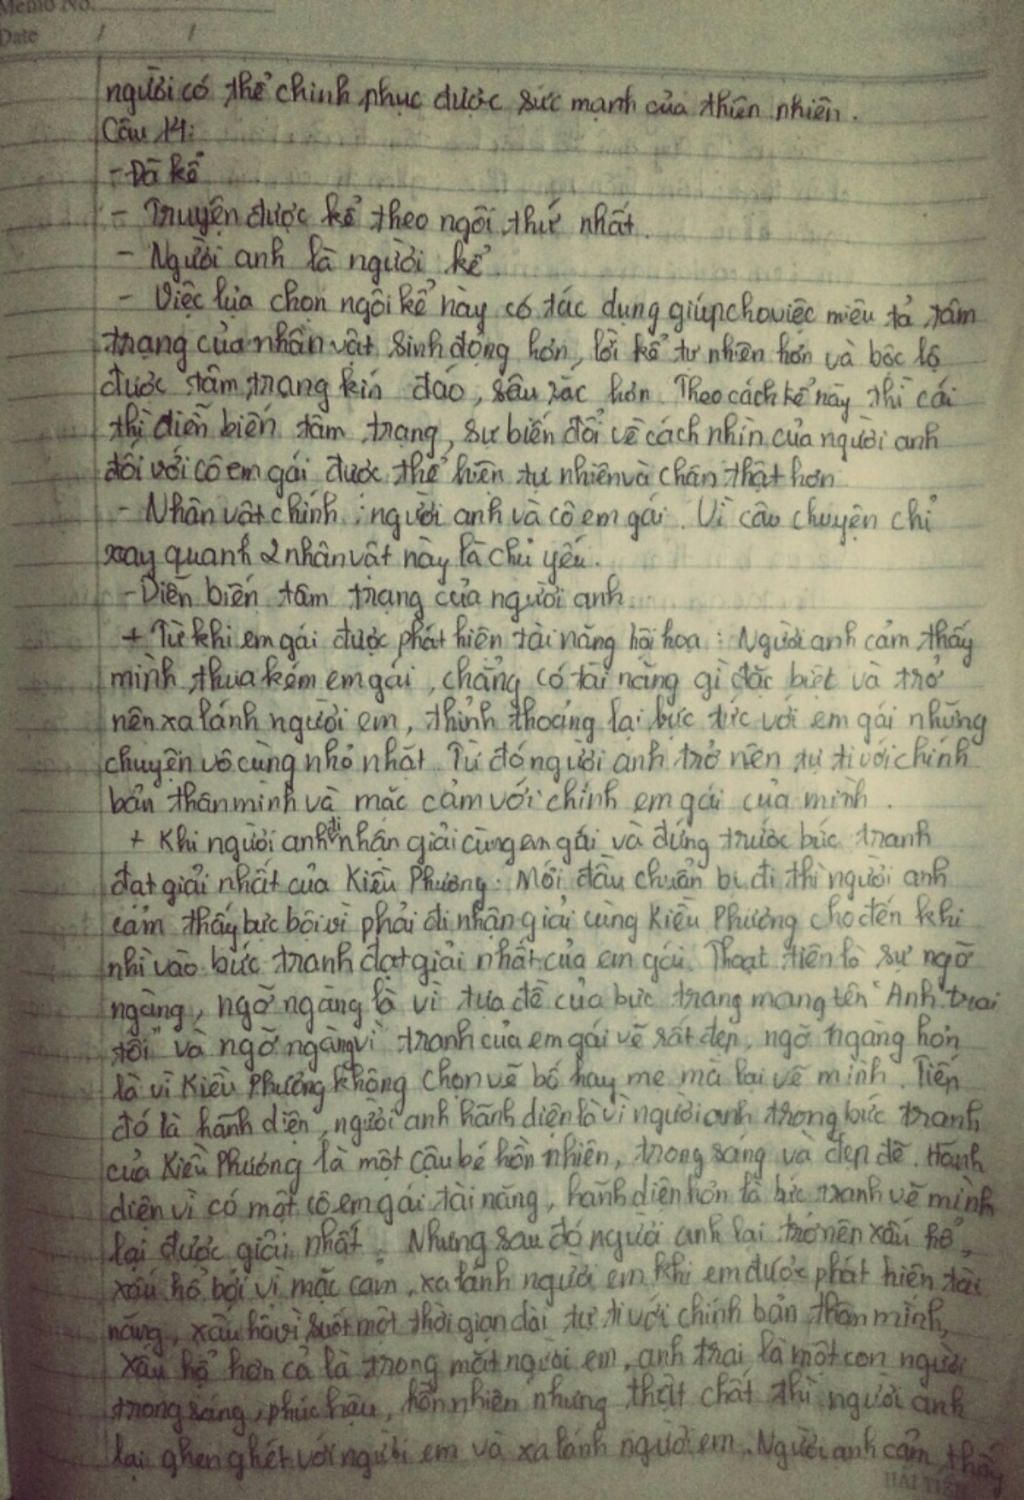 Memo No.
Date / /
người có thể chinh phục được sức mạnh của thiên nhiên.
Câu 14:
- Đã kể
- Truyện được kể theo ngôi thứ nhất.
- Người anh là người kể.
- Việc lựa chọn ngôi kể này có tác dụng giúp cho việc miêu tả tâm
trạng của nhân vật sinh động hơn, lời kể tự nhiên hơn và bộc lộ
được tâm trạng kín đáo, sâu sắc hơn. Theo cách kể này thì cái
thì diễn biến tâm trạng, sự biến đổi về cách nhìn của người anh
đối với cô em gái được thể hiện tự nhiên và chân thật hơn
- Nhân vật chính : người anh và cô em gái. Vì câu chuyện chỉ
xoay quanh 2 nhân vật này là chủ yếu.
- Diễn biến tâm trạng của người anh
+ Từ khi em gái được phát hiện tài năng hội hoạ : Người anh cảm thấy
mình thua kém em gái, chẳng có tài năng gì đặc biệt và trở
nên xa lánh người em, thỉnh thoảng lại bực tức với em gái những
chuyện vô cùng nhỏ nhất. Từ đó người anh trở nên tự ti với chính
bản thân mình và mặc cảm với chính em gái của mình.
+ Khi người anh đi nhận giải cùng em gái và đứng trước bức tranh
đạt giải nhất của Kiều Phương: Mới đầu chuẩn bị đi thì người anh
cảm thấy bực bội vì phải đi nhận giải cùng Kiều Phương cho đến khi
nhì vào bức tranh đạt giải nhất của em gái. Thoạt tiên là sự ngỡ
ngàng, ngỡ ngàng là vì tựa đề của bức trang mang tên "Anh trai
tôi" và ngỡ ngàng vì tranh của em gái vẽ rất đẹp, ngỡ ngàng hơn
là vì Kiều Phương không chọn vẽ bố hay mẹ mà lại vẽ mình. Tiếp
đó là hãnh diện, người anh hãnh diện là vì người anh trong bức tranh
của Kiều Phương là một cậu bé hồn nhiên, trong sáng và đẹp đẽ. Hãnh
diện vì có một cô em gái tài năng, hãnh diện hơn là bức tranh vẽ mình
lại được giải nhất. Nhưng sau đó người anh lại trở nên xấu hổ,
xấu hổ bởi vì mặc cảm, xa lánh người em khi em được phát hiện tài
năng, xấu hổ vì suốt một thời gian dài tự ti với chính bản thân mình,
xấu hổ hơn cả là trong mắt người em, anh trai là một con người
trong sáng, phúc hậu, hồn nhiên nhưng thật chất thì người anh
lại ghen ghét với người em và xa lánh người em. Người anh cảm thấy
HẢI TIẾN